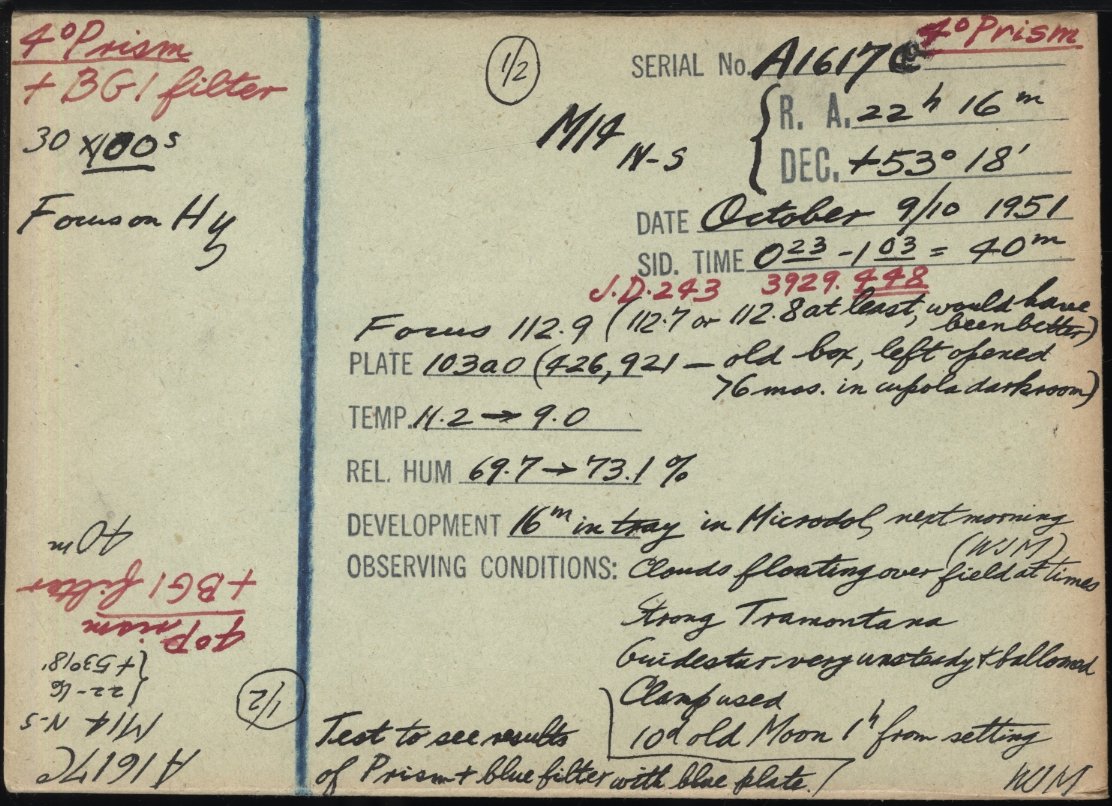 4° Prism
+ BG1 filter
30 x 100s
Focus on Hγ
1/2
4° Prism
SERIAL No. A1617c
M14 N-S
R. A. 22h 16m
DEC. +53° 18'
DATE October 9/10 1951
SID. TIME 0 23 - 1 03 = 40m
J.D. 243 3929.448
Focus 112.9 (112.7 or 112.8 at least, would have
been better)
PLATE 103aO (426,921 — old box, left opened
76 mos. in cupola darkroom)
TEMP. 11.2 → 9.0
REL. HUM 69.7 → 73.1 %
DEVELOPMENT 16m in tray in Microdol, next morning
(WJM)
OBSERVING CONDITIONS: Clouds floating over field at times
Strong Tramontana
Guidestar very unsteady + ballooned
Clamp used
10d old Moon 1h from setting
Test to see results
of Prism + blue filter with blue plate.
WJM
A1617c
M14 N-S
22-16
+53°18'
1/2
4° Prism
+ BG1 filter
40m